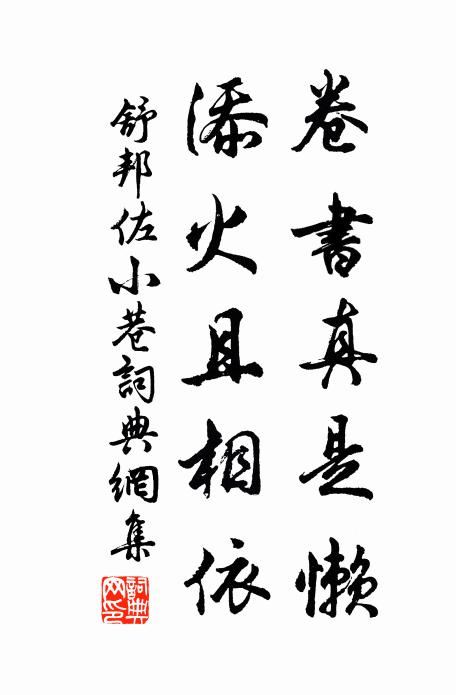 卷書真是懶
添火且相依
舒邦佐小巷詞典網集
詞典
网印